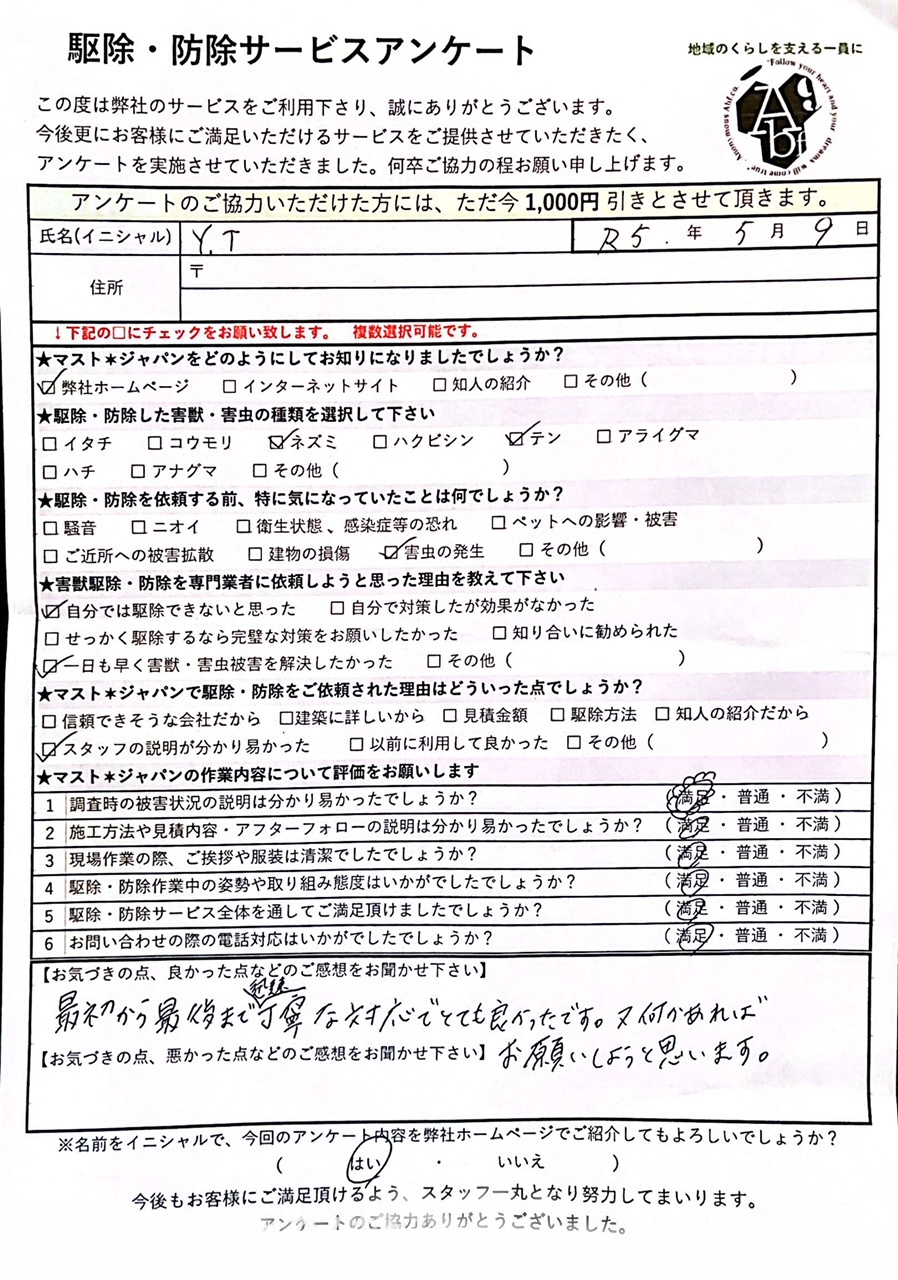 駆除・防除サービスアンケート
地域のくらしを支える一員に
"Follow your heart and your dreams will come true" Anonymous Ahf.co.
A g b f
この度は弊社のサービスをご利用下さり、誠にありがとうございます。
今後更にお客様にご満足いただけるサービスをご提供させていただきたく、
アンケートを実施させていただきました。何卒ご協力の程お願い申し上げます。
アンケートのご協力いただけた方には、ただ今 1,000円 引きとさせて頂きます。
氏名(イニシャル) Y.T R5. 年 5 月 9 日
住所 〒
↓下記の□にチェックをお願い致します。 複数選択可能です。
★マスト＊ジャパンをどのようにしてお知りになりましたでしょうか？
☑弊社ホームページ □インターネットサイト □知人の紹介 □その他（ ）
★駆除・防除した害獣・害虫の種類を選択して下さい
□イタチ □コウモリ ☑ネズミ □ハクビシン ☑テン □アライグマ
□ハチ □アナグマ □その他（ ）
★駆除・防除を依頼する前、特に気になっていたことは何でしょうか？
□騒音 □ニオイ □衛生状態、感染症等の恐れ □ペットへの影響・被害
□ご近所への被害拡散 □建物の損傷 ☑害虫の発生 □その他（ ）
★害獣駆除・防除を専門業者に依頼しようと思った理由を教えて下さい
☑自分では駆除できないと思った □自分で対策したが効果がなかった
□せっかく駆除するなら完璧な対策をお願いしたかった □知り合いに勧められた
☑一日も早く害獣・害虫被害を解決したかった □その他（ ）
★マスト＊ジャパンで駆除・防除をご依頼された理由はどういった点でしょうか？
□信頼できそうな会社だから □建築に詳しいから □見積金額 □駆除方法 □知人の紹介だから
☑スタッフの説明が分かり易かった □以前に利用して良かった □その他（ ）
★マスト＊ジャパンの作業内容について評価をお願いします
1 調査時の被害状況の説明は分かり易かったでしょうか？ （満足・普通・不満）
2 施工方法や見積内容・アフターフォローの説明は分かり易かったでしょうか？ （満足・普通・不満）
3 現場作業の際、ご挨拶や服装は清潔でしたでしょうか？ （満足・普通・不満）
4 駆除・防除作業中の姿勢や取り組み態度はいかがでしたでしょうか？ （満足・普通・不満）
5 駆除・防除サービス全体を通してご満足頂けましたでしょうか？ （満足・普通・不満）
6 お問い合わせの際の電話対応はいかがでしたでしょうか？ （満足・普通・不満）
【お気づきの点、良かった点などのご感想をお聞かせ下さい】
迅速
最初から最後まで丁寧な対応でとても良かったです。又何かあれば
【お気づきの点、悪かった点などのご感想をお聞かせ下さい】 お願いしようと思います。
※名前をイニシャルで、今回のアンケート内容を弊社ホームページでご紹介してもよろしいでしょうか？
（ はい ・ いいえ ）
今後もお客様にご満足頂けるよう、スタッフ一丸となり努力してまいります。
アンケートのご協力ありがとうございました。